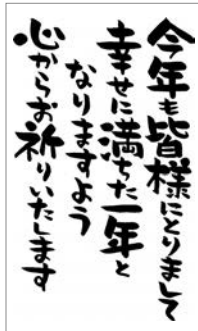 今年も皆様にとりまして
幸せに満ちた一年と
なりますよう
心からお祈りいたします